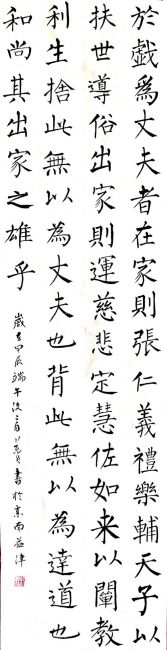 於戯為丈夫者在家則張仁義禮樂輔天子以
扶世導俗出家則運慈悲定慧佐如来以闡教
利生捨此無以為丈夫也背此無以為達道也
和尚其出家之雄乎
歲在甲辰端午後二日
書於京南益津